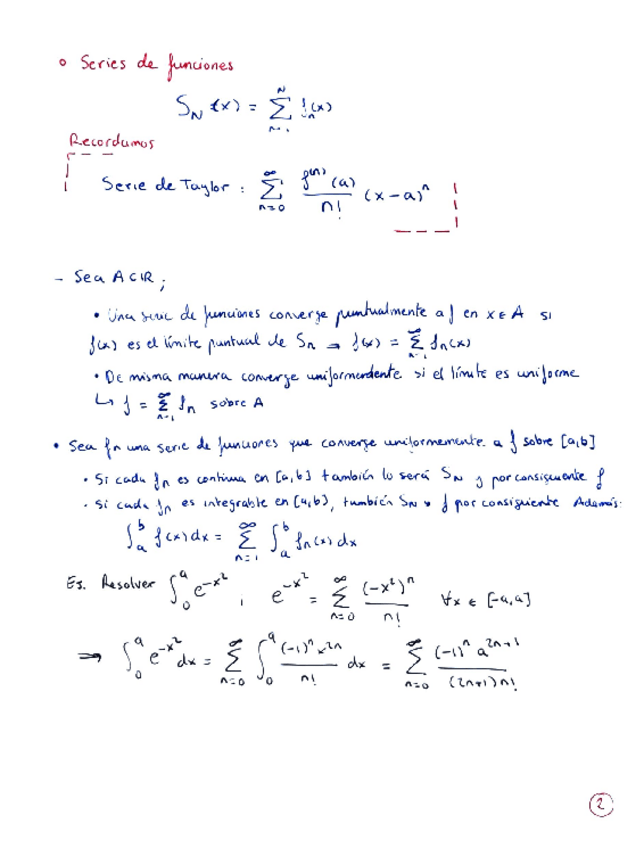 o Series de funciones
S_N (x) = \sum_{n=1}^{N} f_n(x)
Recordamos
Serie de Taylor : \sum_{n=0}^{\infty} \frac{f^{(n)}(a)}{n!} (x-a)^n
- Sea A ⊂ IR ;
• Una serie de funciones converge puntualmente a f en x ∈ A si
f(x) es el límite puntual de S_n ⇒ f(x) = \sum_{n=1}^{\infty} f_n(x)
• De misma manera converge uniformemente si el límite es uniforme
↳ f = \sum_{n=1}^{\infty} f_n sobre A
• Sea f_n una serie de funciones que converge uniformemente a f sobre [a,b]
• Si cada f_n es continua en [a,b] también lo será S_N y por consiguiente f
• Si cada f_n es integrable en [a,b], también S_N y f por consiguiente Además:
\int_a^b f(x)dx = \sum_{n=1}^{\infty} \int_a^b f_n(x)dx
Ej. Resolver \int_0^a e^{-x^2} , e^{-x^2} = \sum_{n=0}^{\infty} \frac{(-x^2)^n}{n!} ∀x ∈ [-a,a]
⇒ \int_0^a e^{-x^2}dx = \sum_{n=0}^{\infty} \int_0^a \frac{(-1)^n x^{2n}}{n!} dx = \sum_{n=0}^{\infty} \frac{(-1)^n a^{2n+1}}{(2n+1)n!}
2